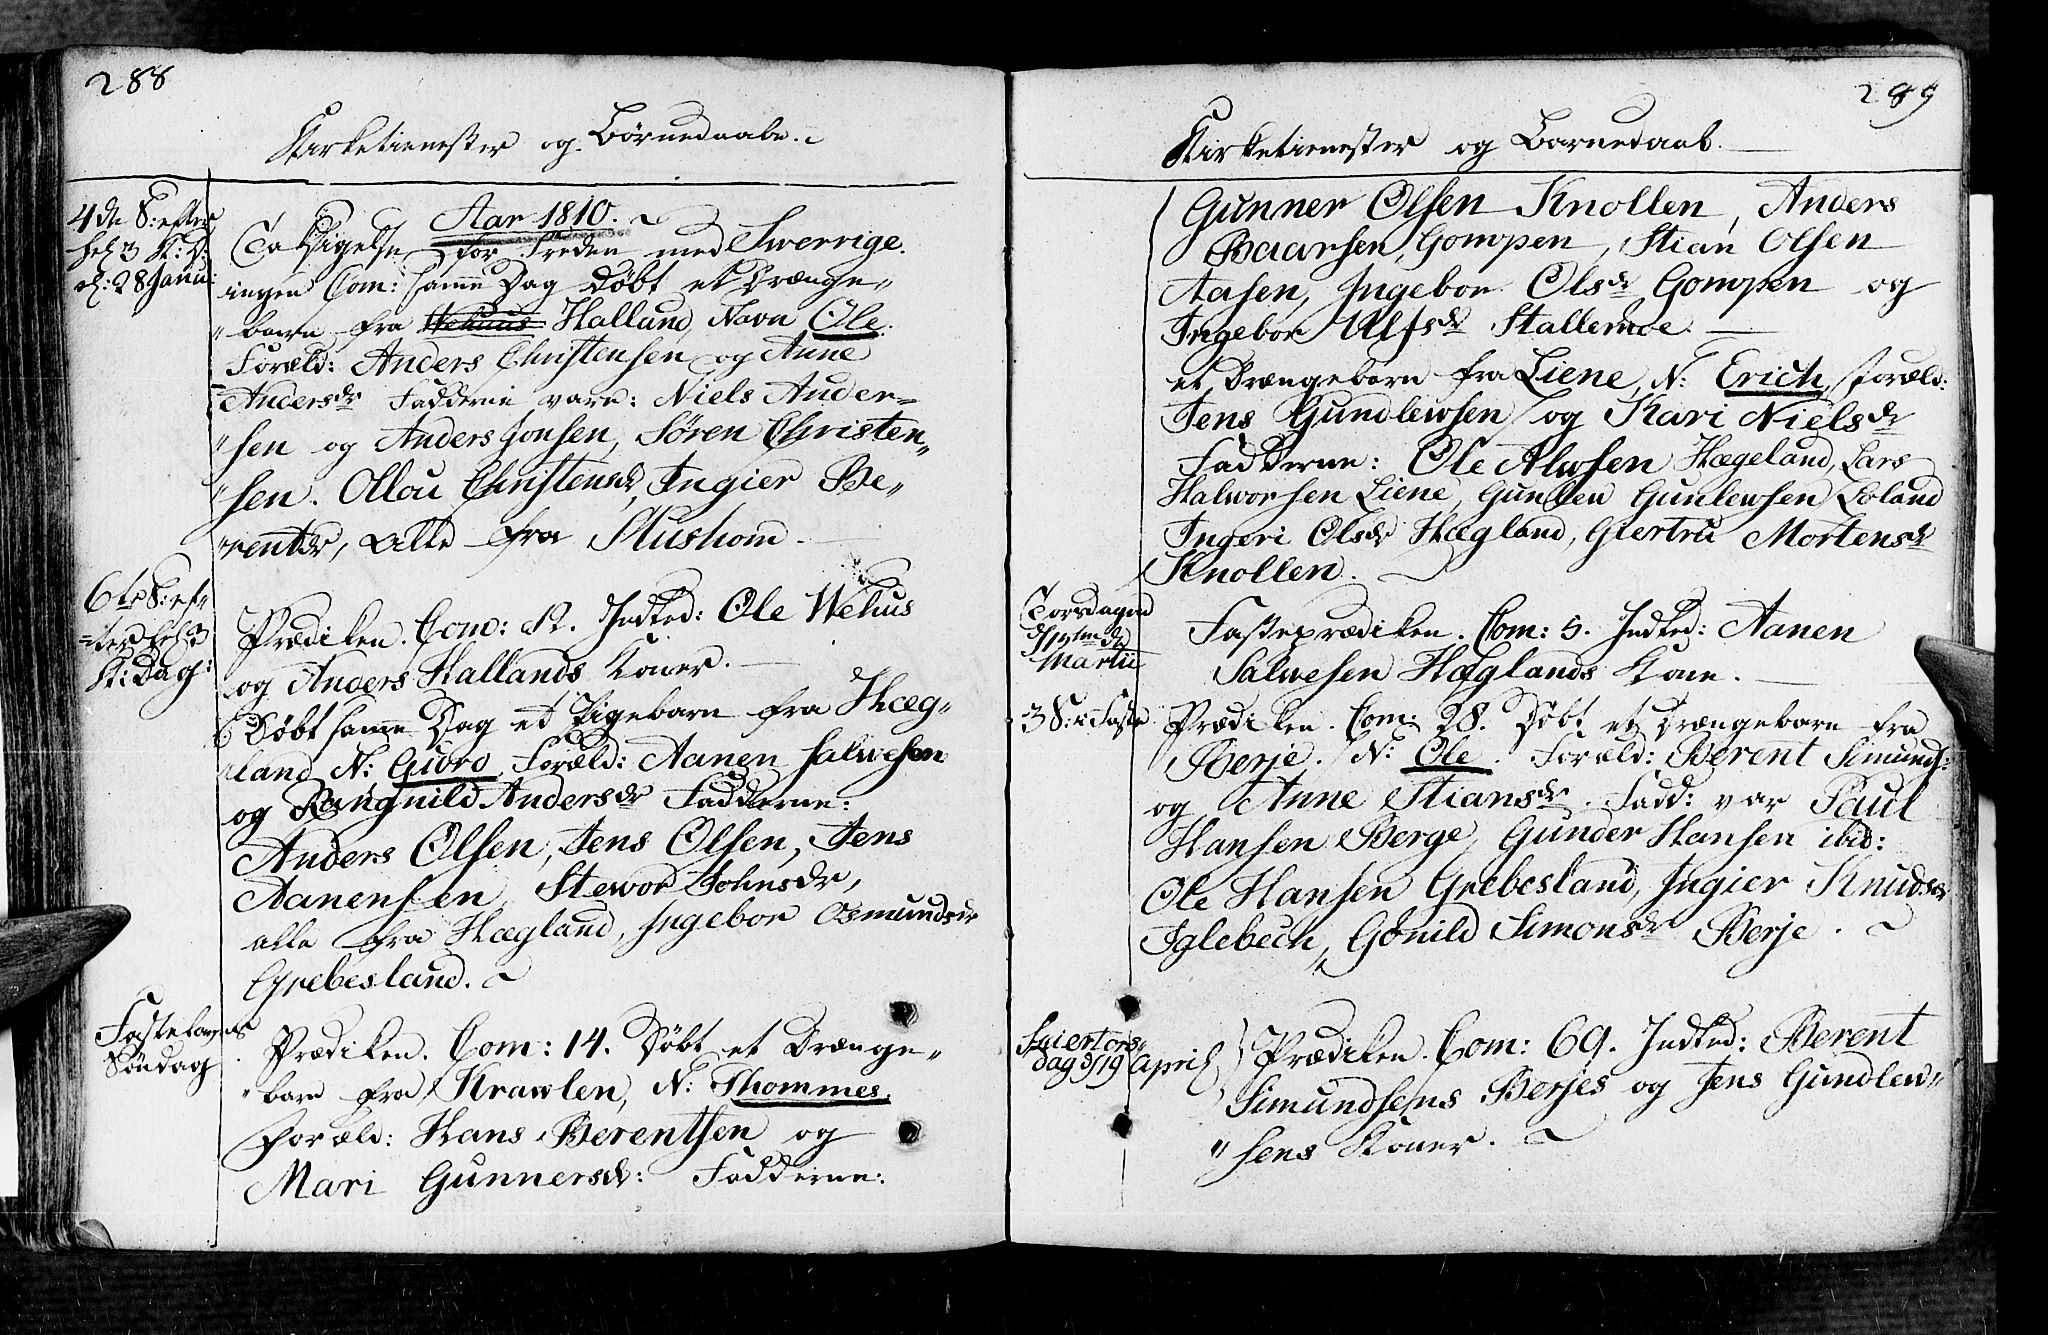 288
Kirketienester og Børnedaabe.
Aar 1810.
4de S: efter
hel 3 K: D:
d: 28 Janu:
Taksigelse for Freden med Swerrige.
ingen Com: samme Dag Døbt et Drænge-
barn fra Wehuus Halland, Navn Ole.
Foræld: Anders Christensen og Anne
Andersdr Fadderne vare: Niels Ander-
sen og Anders Jonsen, Søren Christen-
sen. Ollou Christensdr, Ingier Be-
rentdr, alle fra Stushom.
6te S: ef-
ter hel 3
K: Dag:
Prædiken. Com: Indled: Ole Wehus
og Anders Hallands Koner.
Døbt samme Dag et Pigebarn fra Hæg-
land N: Guoro Foræld: Aanen Salwesen
og Rangnild Andersdr Fadderne:
Anders Olsen, Jens Olsen, Jens
Aanensen, Stewor Johnsdr,
alle fra Hægland, Ingebor Osmundsdr
Grebesland.
Fastelavens
Søndag
Prædiken. Com: 14. Døbt et Drænge-
barn fra Krawlen, N: Thommes.
Foræld: Hans Berentsen og
Mari Gunnersdr: Fadderne:
289
Kirketienester og Barnedaab.
Gunner Olsen Knollen, Anders
Baarsen, Gompen, Stian Olsen
Aasen, Ingebor Olsdr Gompen og
Ingebor Ulfsdr Stallemoe.
et Drængebarn fra Liene, N: Erich, Foræld:
Jens Gundlewsen og Kari Nielsdr
Fadderne: Ole Alwsen Hægeland, Lars
Halworsen Liene, Gunlew Gunlewsen Loland
Ingeri Olsdr Hægland, Giertru Mortensdr
Knollen.
Torsdagen
Martii
Fasteprædiken. Com: 5. Indled: Aanen
Salwesen Hæglands Kone.
3 S: i Faste
Prædiken. Com: 28. Døbt et Drængebarn fra
Berje. N: Ole. Foræld: Berent Simunds:
og Anne Stiansdr. Fadd: var Paul
Hansen Berge, Gunder Hansen ibid:
Ole Hansen Grebesland, Ingier Knudsdr
Iglebech, Gonild Simonsdr Berje.
Skiertors-
dag d/19 April
Prædiken. Com: 69. Indled: Berent
Simundsens Berjes og Jens Gundlew-
sens Koner.